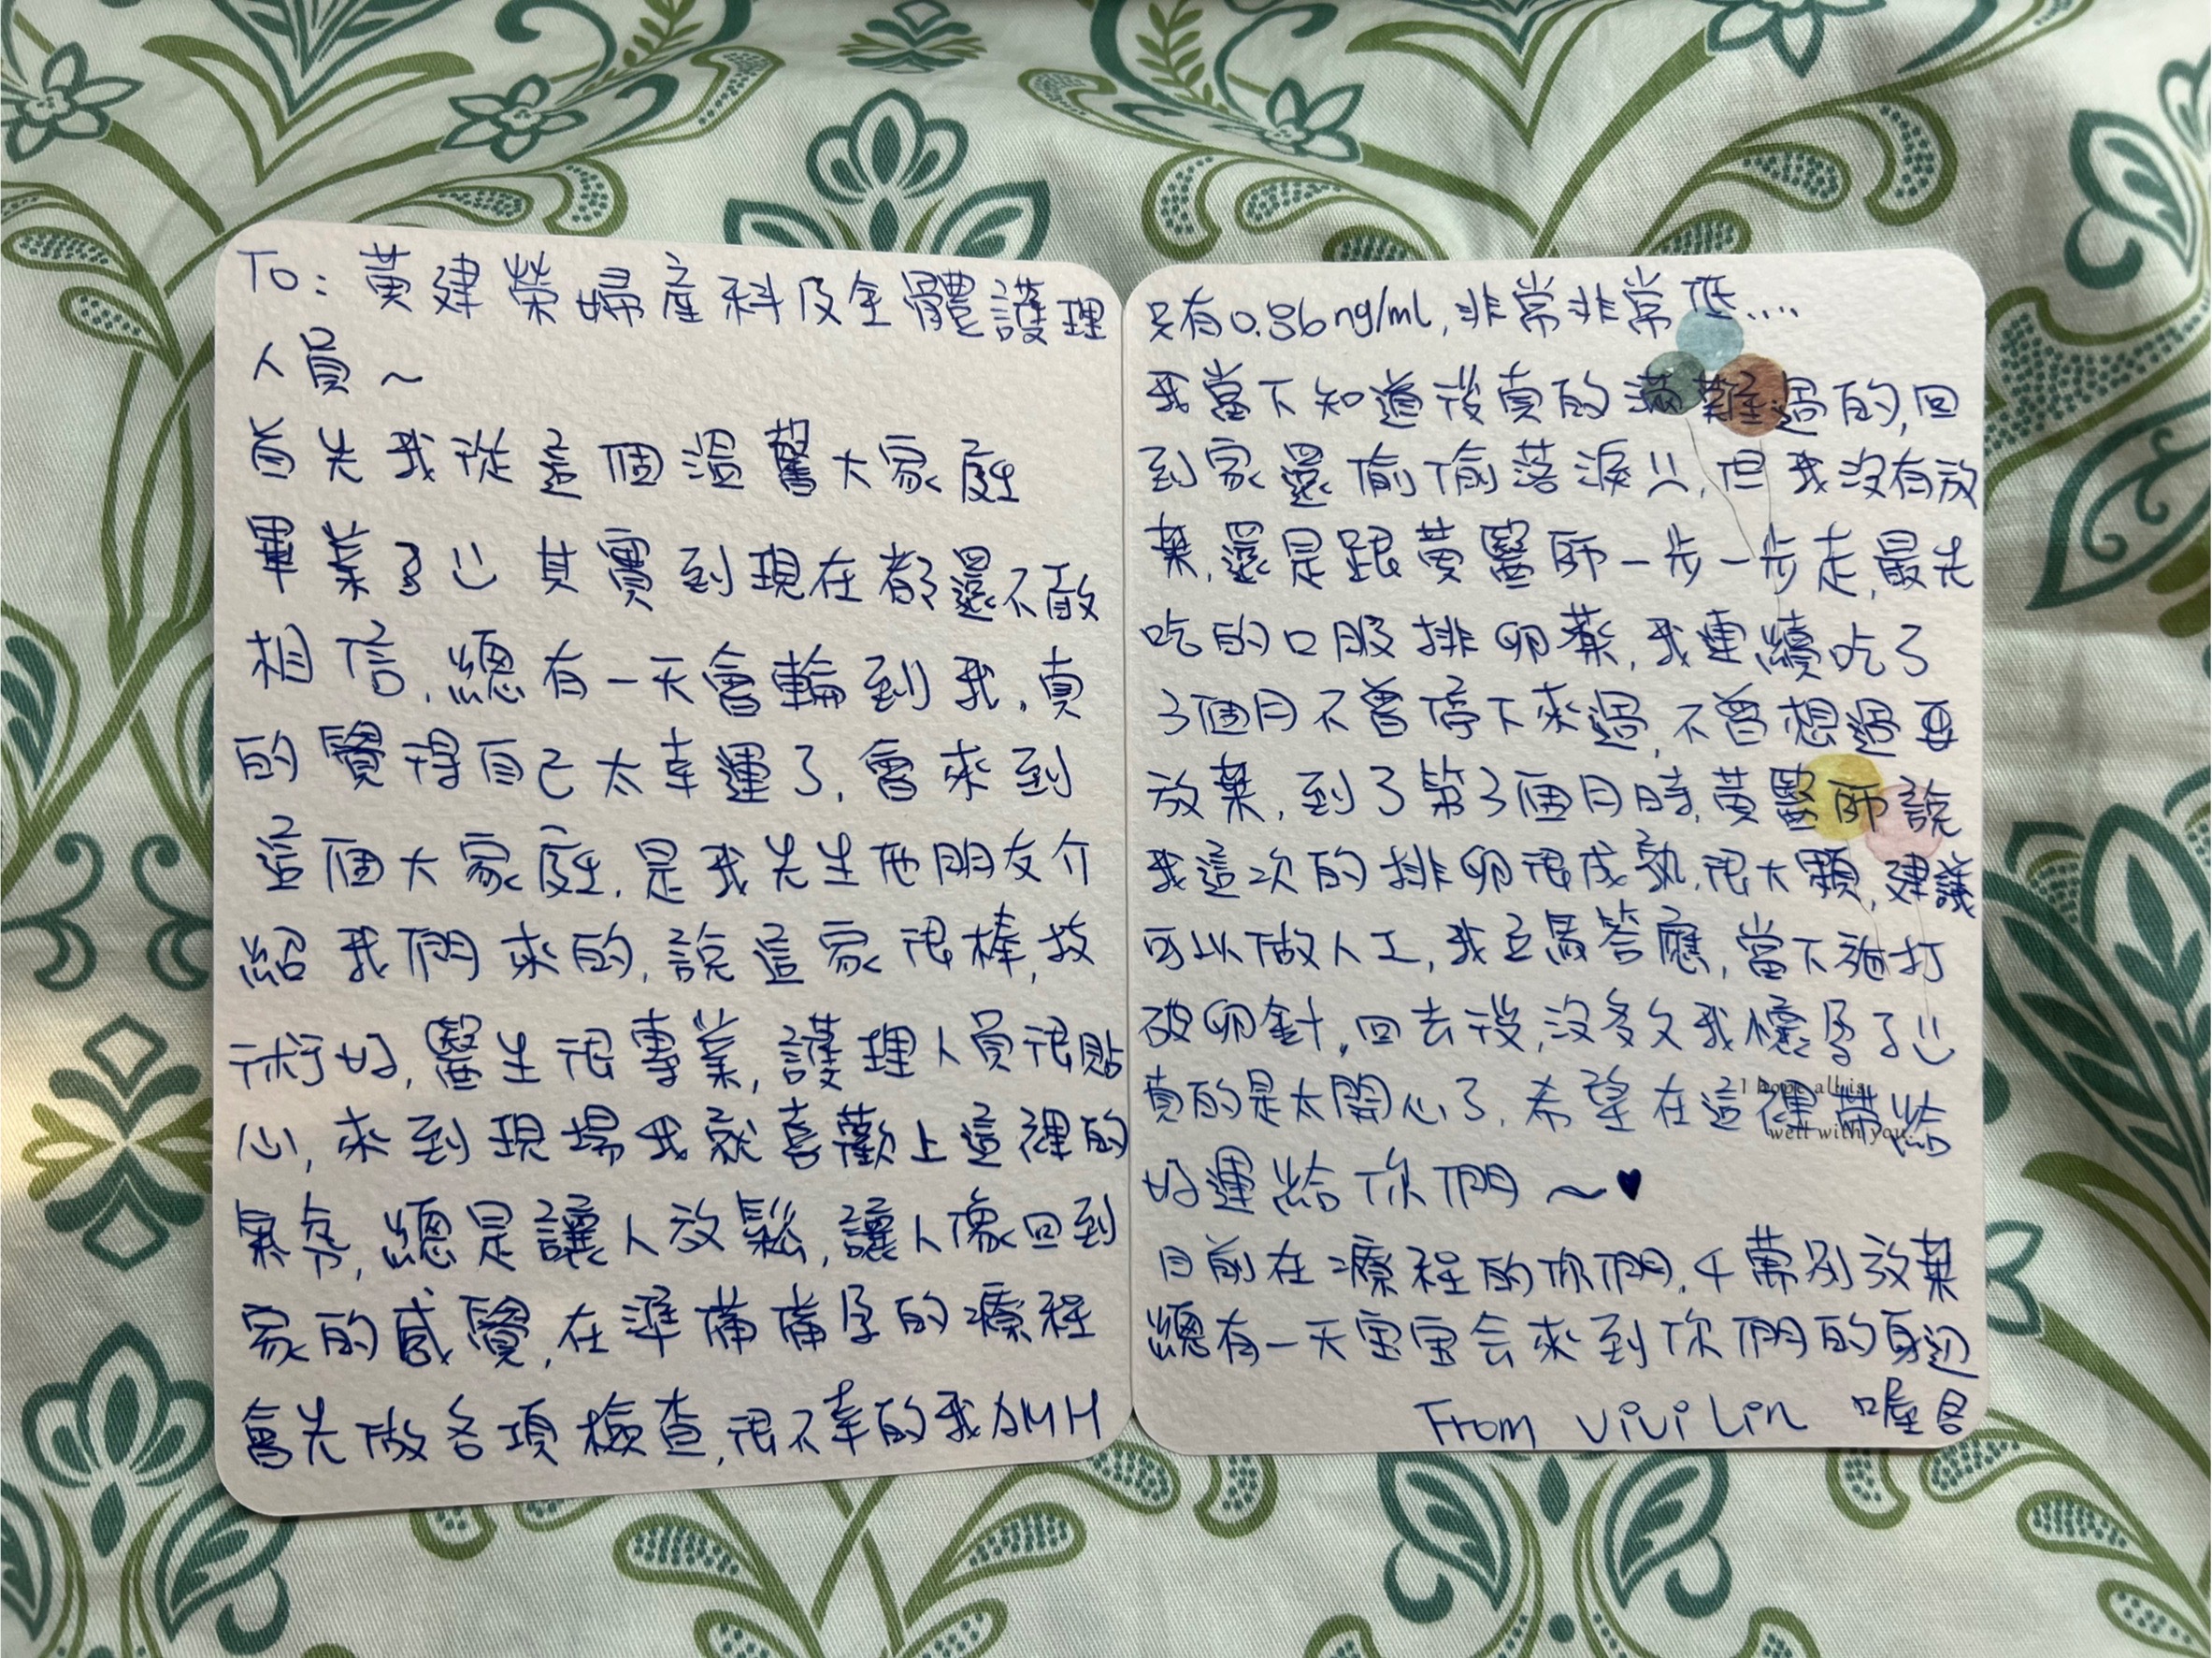 To: 黃建榮婦產科及全體護理
人員~
首先我從這個溫馨大家庭
畢業了 :) 其實到現在都還不敢
相信，總有一天會輪到我，真
的覺得自己太幸運了，會來到
這個大家庭，是我先生他朋友介
紹我們來的，說這家很棒，技
術好，醫生很專業，護理人員很貼
心，來到現場我就喜歡上這裡的
氣氛，總是讓人放鬆，讓人像回到
家的感覺，在準備備孕的療程
會先做各項檢查，很不幸的我AMH
只有0.86ng/ml，非常非常低....
我當下知道後真的滿難過的，回
到家還偷偷落淚 :(，但我沒有放
棄，還是跟黃醫師一步一步走，最先
吃的口服排卵藥，我連續吃了
3個月不曾停下來過，不曾想過要
放棄，到了第3個月時，黃醫師說
我這次的排卵很成熟，很大顆，建議
可以做人工，我立馬答應，當下施打
破卵針，回去後，沒多久我懷孕了 :)
真的是太開心了，希望在這裡帶給
I hope all is
well with you.
好運給你們~♥
目前在療程的你們，千萬別放棄
總有一天宝宝会來到你們的身边
From ViVi Lin 喔君